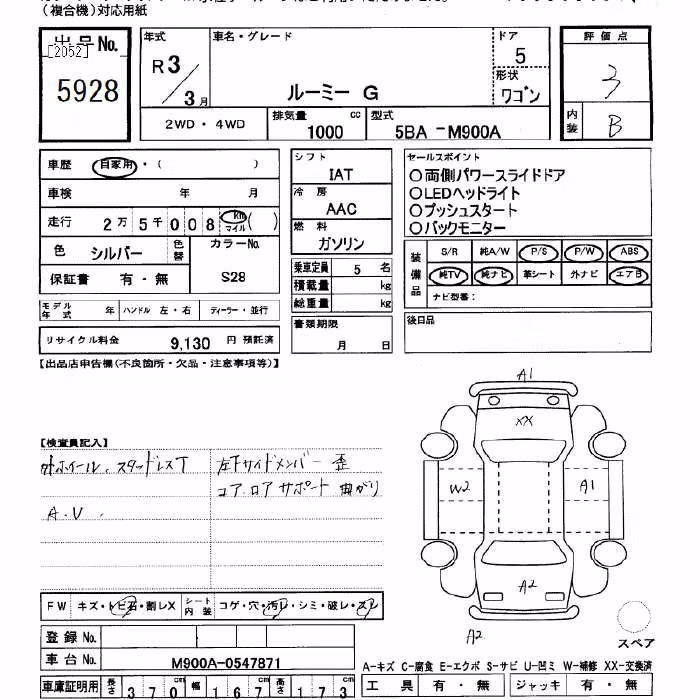 （複合機）対応用紙
出品No.
[2052]
5928
年式
R3
3月
車名・グレード
ルーミー G
ドア
5
形状
ワゴン
評価点
3
内装
B
2WD・4WD
排気量
1000 cc
型式
5BA -M900A
車歴 自家用・( )
車検 年 月
走行 2万5千008 km ( )
マイル
色 シルバー 色替
カラーNo.
S28
保証書 有・無
モデル年式 年 ハンドル 左・右 ディーラー・並行
リサイクル料金 9,130 円 預託済
シフト
IAT
冷房
AAC
燃料
ガソリン
乗車定員 5 名
積載量 kg
総重量 kg
書類期限
月 日
セールスポイント
○両側パワースライドドア
○LEDヘッドライト
○プッシュスタート
○バックモニター
装備品
S/R 純A/W P/S P/W ABS
純TV 純ナビ 革シート 外ナビ エアB
ナビ型番：
後日品
【出品店申告欄(不良箇所・欠品・注意事項等)】
【検査員記入】
外ホイール、スタッドレスT
A.V.
左下サイドメンバー 歪
コア.ロア サポート 曲がり
A1
XX
W2
A1
A2
A2
スペア
FW キズ・トビ石・割レX
シート内装 コゲ・穴・汚レ・シミ・破レ・スレ
登録No.
車台No. M900A-0547871
車庫証明用 長さ 370cm 幅 167cm 高さ 173cm
A-キズ C-腐食 E-エクボ S-サビ U-凹ミ W-補修 XX-交換済
工具 有・無 ジャッキ 有・無